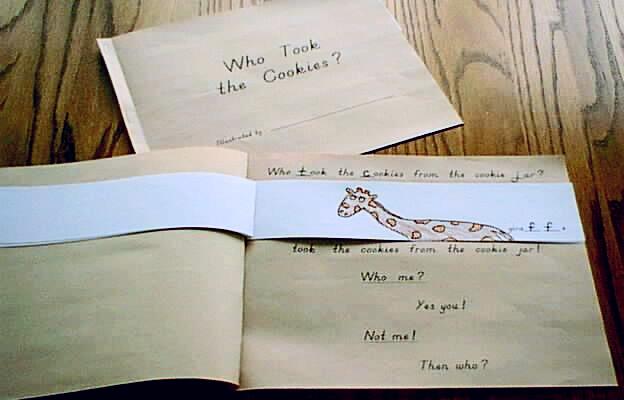 Who Took
the Cookies?
Illustrated by
Who took the cookies from the cookie jar?
gira f f e
took the cookies from the cookie jar!
Who me?
Yes you!
Not me!
Then who?